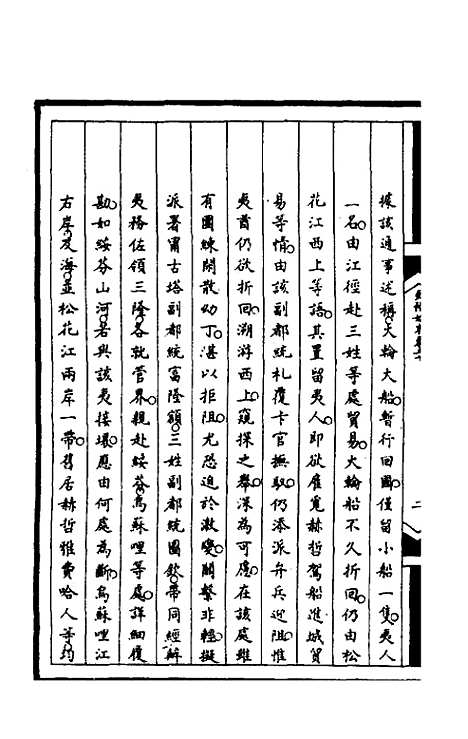 據該通事述稱。火輪大船。暫行回國。僅留小船一隻。夷人
一名。由江徑赴三姓等處貿易。火輪船不久折回。仍由松
花江西上等語。其置留夷人。即欲雇覓赫哲駕船進城貿
易等情。由該副都統札覆卡官撫馭。仍添派弁兵迎阻。惟
夷酋仍欲折回。溯游西上。窺探之舉。深為可慮。在該處雖
有團練閒散幼丁。湛以拒阻。尤恐迫於激變。關繫非輕。擬
派署甯古塔副都統富隆額。三姓副都統圖欽。帶同經辦
夷務佐領三隆。各就管界。親赴綏芬烏蘇哩等處。詳細履
勘。如綏芬山河。若與該夷接壤。應由何處為斷。烏蘇哩江
右岸。及海。並松花江兩岸一帶。舊居赫哲雅費哈人等。約
二